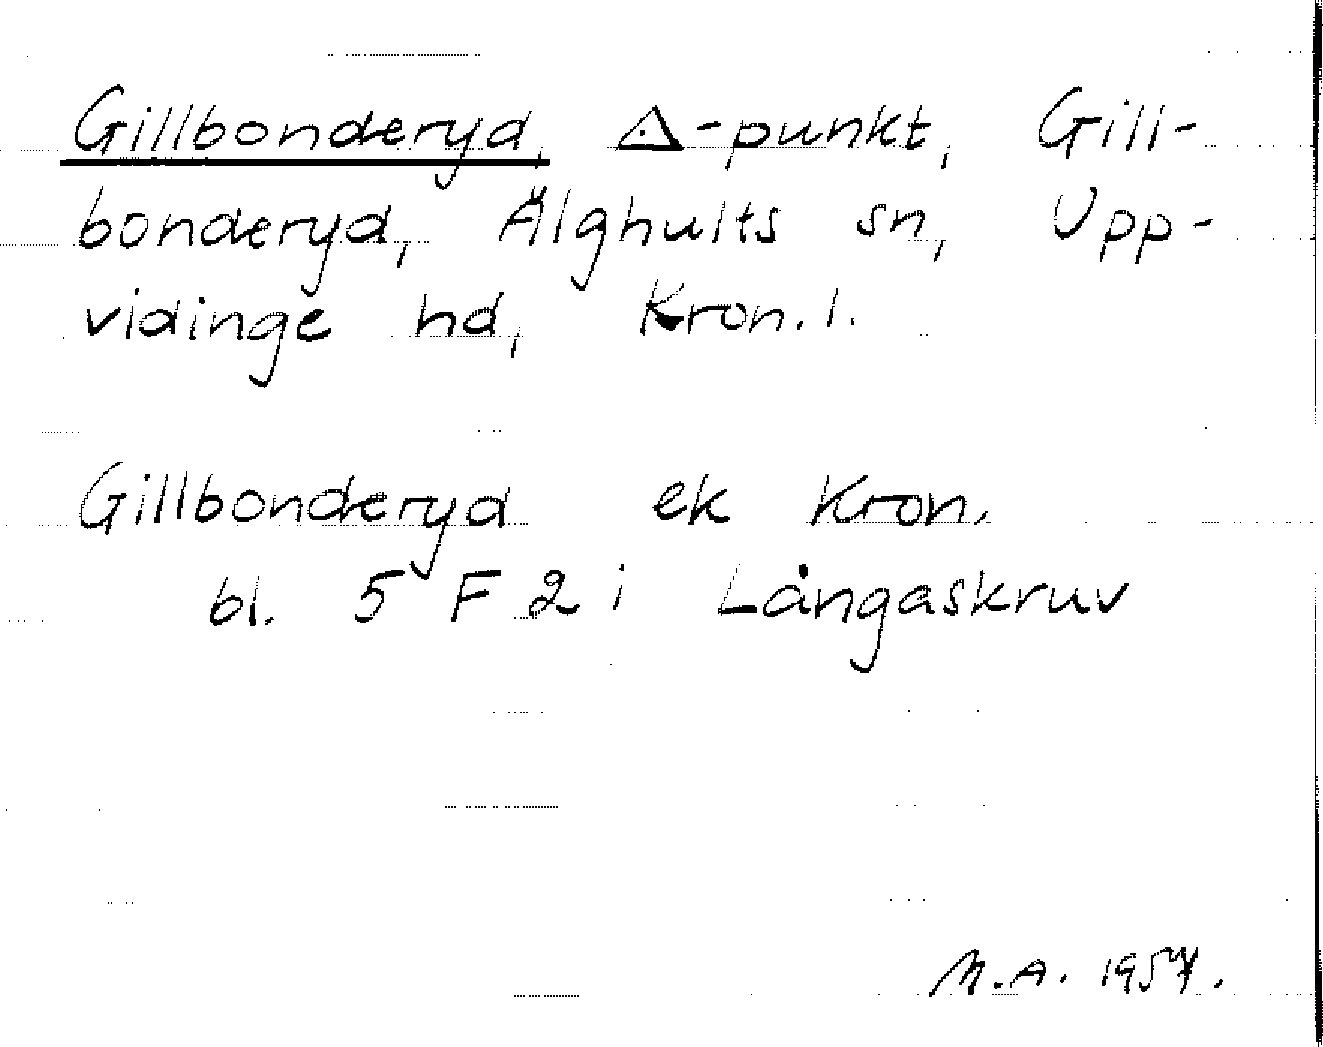 Gillbonderyd, △-punkt, Gill-
bonderyd, Älghults sn, Upp-
vidinge hd, Kron. l.
Gillbonderyd ek Kron.
bl. 5 F 2 i Långaskruv
M.A. 1957.